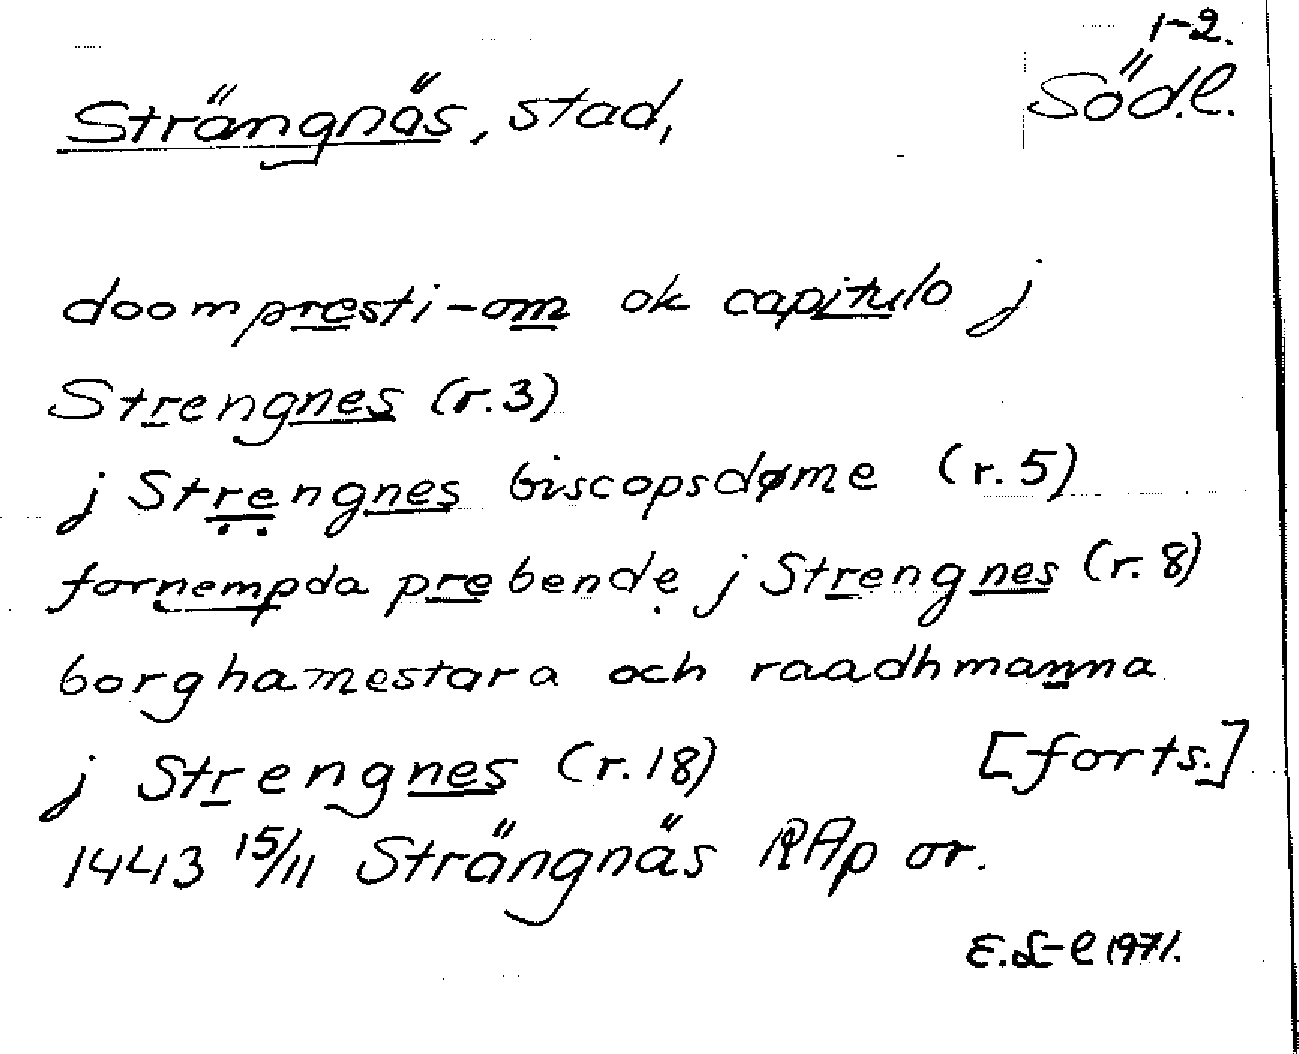 1-2.
Strängnäs, stad, Söd.l.
doompresti-om ok capitulo j
Strengnes (r.3)
j Strengnes biscopsdøme (r.5)
fornempda prebende j Strengnes (r.8)
borghamestara och raadhmanna
j Strengnes (r.18) [forts.]
1443 15/11 Strängnäs RAp or.
E.S-l 1971.